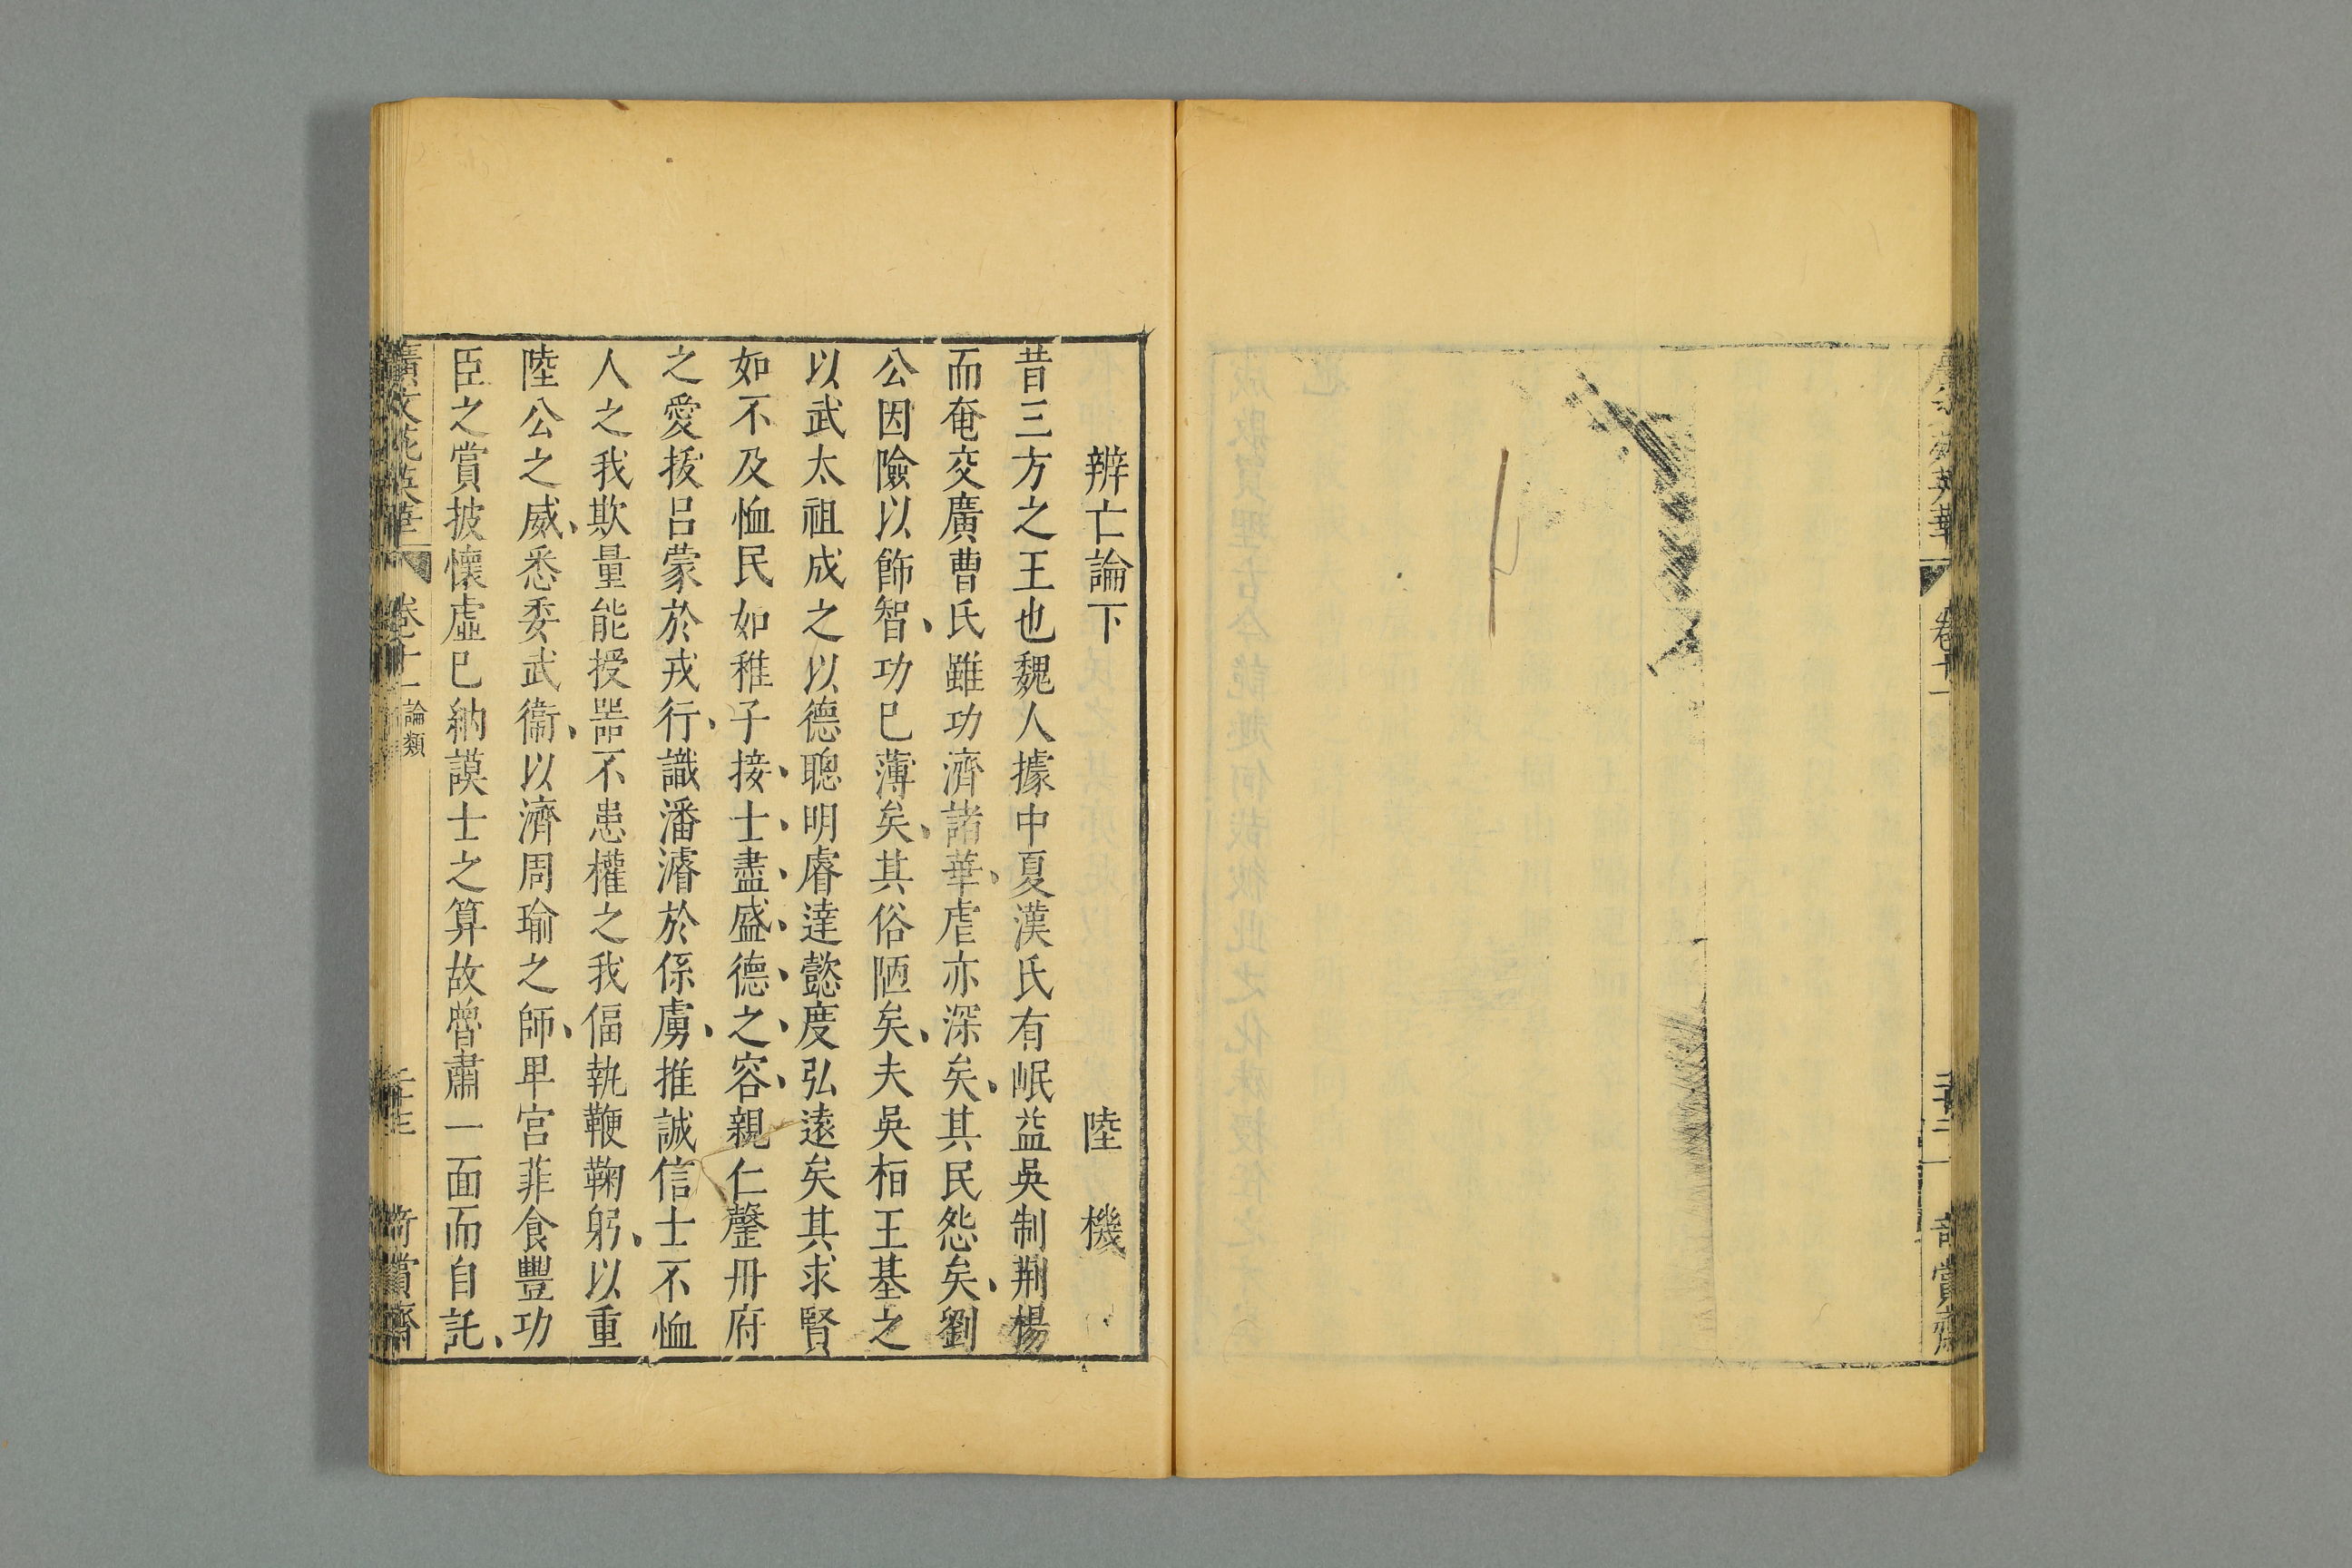 廣文苑英華 卷十一
賞齋
辨亡論下 陸機
昔三方之王也魏人據中夏漢氏有岷益吳制荆楊
而奄交廣曹氏雖功濟諸華、虐亦深矣、其民怨矣、劉
公因險以飾智、功已薄矣、其俗陋矣、夫吳桓王基之
以武太祖成之以德聰明睿達懿度弘遠矣其求賢
如不及恤民如稚子接、士、盡、盛、德、之、容、親仁罄丹府
之愛拔吕蒙於戎行、識潘濬於係虜、推誠信士不恤
人之我欺量能授噐不患權之我偪執鞭鞠躬、以重
陸公之威、悉委武衞、以濟周瑜之師、卑宫菲食豐功
臣之賞披懷虛已納謨士之算故魯肅一面而自託、
廣文苑英華 卷十一 論類
賞齋